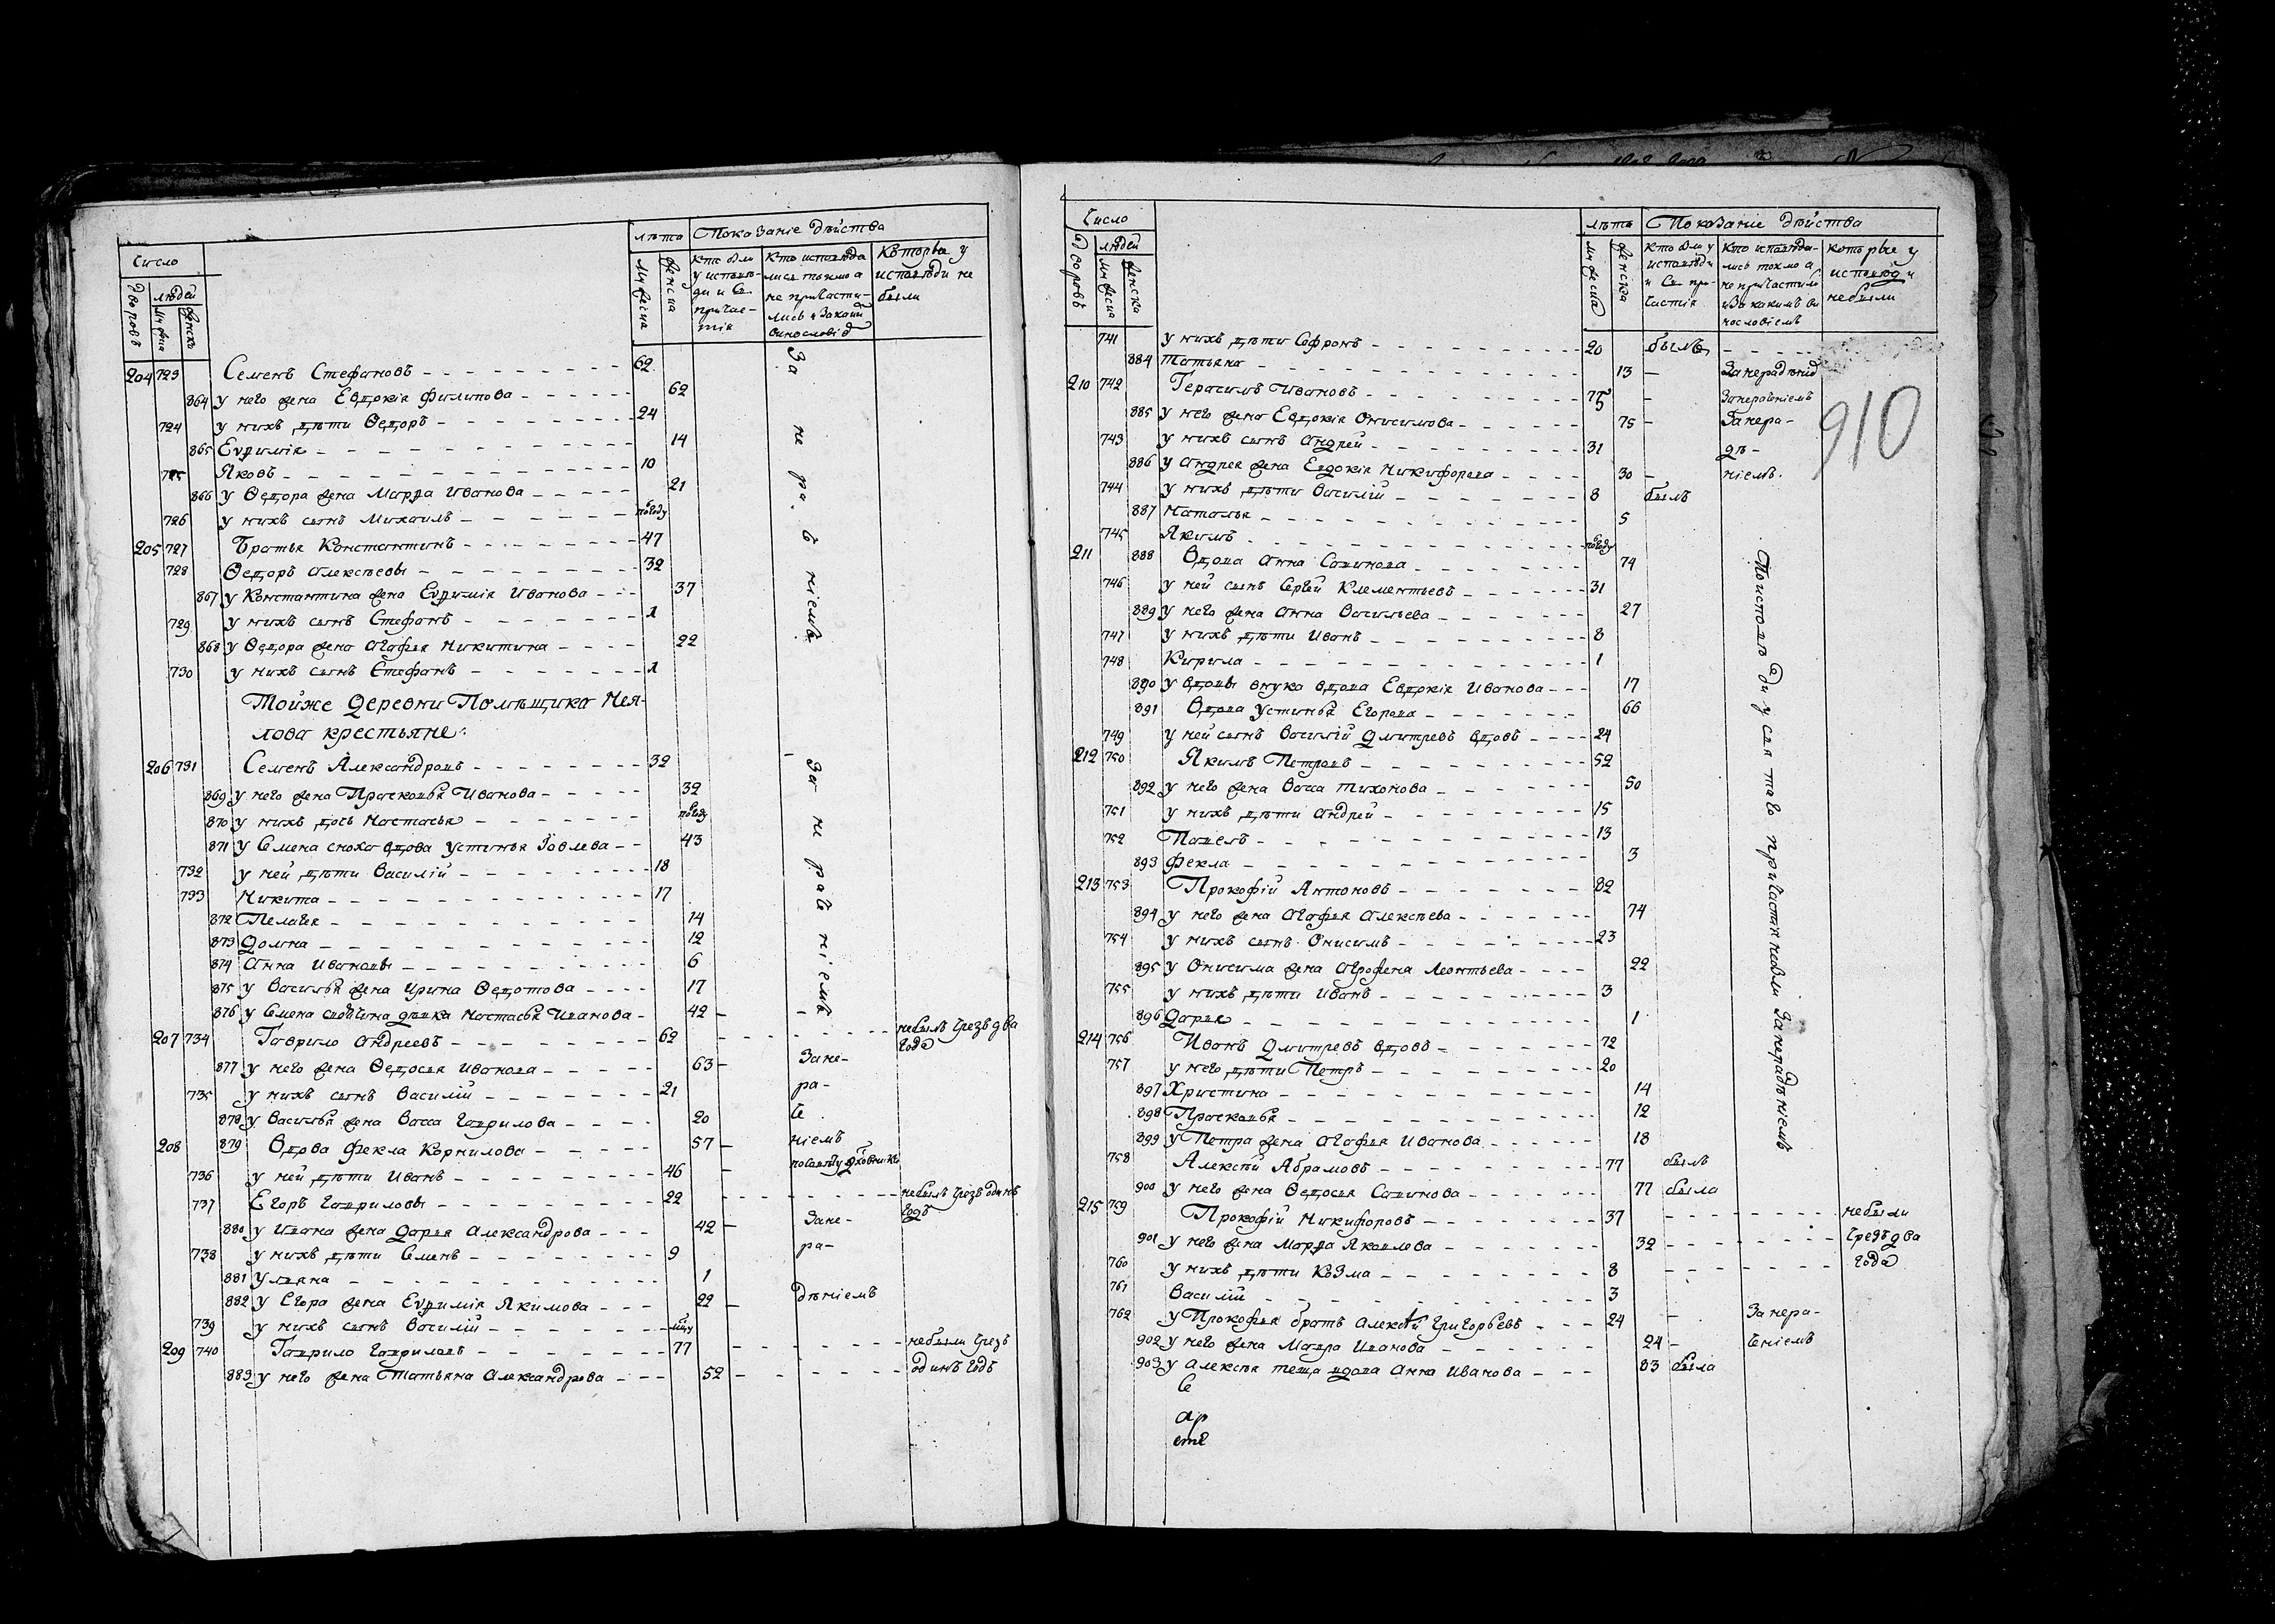 Число
дворовъ
людей
мужеска
женска
лѣта
мужеска
женска
Показаніе дѣйства
Кто были
у исповѣ-
ди и Св.
причас-
тія
Кто исповѣда
лись токмо а
не причасти-
лись и за каким
винословіе
Которые у
исповѣди не
были
204 723 Семенъ Стефановъ 62
864 у него жена Евдокія Филипова 62
724 у нихъ дѣти Ѳедоръ 24
865 Евфимія 14
725 Яковъ 10
866 у Ѳедора жена Марфа Иванова 21
726 у нихъ сынъ Михаилъ полгоду
205 727 Братья Константинъ 47
728 Ѳедоръ Алексѣевы 32
867 у Константина жена Евфимія Иванова 37
729 у нихъ сынъ Стефанъ 1
868 у Ѳедора жена Агафья Никитина 22
730 у нихъ сынъ Стефанъ 1
За не ра. ч ніемъ
Тойже Деревни Помѣщика Нея-
лова крестьяне:
206 731 Семенъ Александровъ 32
869 у него жена Прасковья Иванова 32
870 у нихъ дочь Настасья полгоду
871 у Семена сноха вдова Устинья Іовлева 43
732 у ней дѣти Василій 18
733 Никита 17
872 Пелагея 14
873 Домна 12
874 Анна Ивановы 6
875 у Василья жена Ирина Ѳедотова 17
876 у Семена своячина дѣвка Настасья Иванова 42
за не рач ніемъ
207 734 Гаврило Андреевъ 62 небылъ чрезъ два
года
877 у него жена Ѳедосья Иванова 63 Зане-
735 у нихъ сынъ Василій 21 ра-
878 у Василья жена Васса Гаврилова 20 че
208 879 Вдова Фекла Корнилова 57 ніемъ
736 у ней дѣти Иванъ 46 посовѣту духовника
737 Егоръ Гавриловы 22 небылъ чрезъ одинъ
годъ
880 у Ивана жена Дарья Александрова 42 Зане-
738 у нихъ дѣти Семенъ 9 ра-
881 Ульяна 1
882 у Егора жена Евфимія Якимова 22 дѣніемъ
739 у нихъ сынъ Василій мцу
209 740 Гаврило Гавриловъ 77 небыли чрезъ
883 у него жена Татьяна Александрова 52 одинъ годъ
Число
дворовъ
людей
мужеска
женска
лѣта
мужеска
женска
Показаніе дѣйства
Кто были у
исповѣди
и Св. при-
частія
Кто исповѣда-
лись токмо а
не причастил
и за какимъ ви
нословіемъ
которые у
исповѣди
небыли
741 у нихъ дѣти Софронъ 20 былъ
884 Татьяна 13 Занерадѣніе
210 742 Герасимъ Ивановъ 75 Занераченіемъ
885 у него жена Евдокія Онисимова 75 Занера-
743 у нихъ сынъ Андрей 31 дѣ-
886 у Андрея жена Евдокія Никифорова 30 ніемъ.
910
744 у нихъ дѣти Василій 8 былъ
887 Наталья 5
745 Якимъ полгоду
211 888 Вдова Анна Савинова 74
746 у ней сынъ Сергѣй Клементьевъ 31
889 у него жена Анна Васильева 27
747 у нихъ дѣти Иванъ 8
748 Кирила 1
890 у вдовы внука вдова Евдокія Иванова 17
891 Вдова Устинья Егорова 66
749 у ней сынъ Василій Дмитревъ вдовъ 24
212 750 Якимъ Петровъ 52
892 у него жена Васса Тихонова 50
751 у нихъ дѣти Андрей 15
752 Павелъ 13
893 Фекла 3
213 753 Прокофій Антоновъ 82
894 у него жена Агафья Алексѣева 74
754 у нихъ сынъ Онисимъ 23
895 у Онисима жена Аграфена Леонтьева 22
755 у нихъ дѣти Иванъ 3
896 Дарья 1
214 756 Иванъ Дмитревъ вдовъ 72
757 у него дѣти Петръ 20
897 Христина 14
898 Прасковья 12
899 у Петра жена Агафья Иванова 18
Занерадѣніемъ
758 Алексѣй Абрамовъ 77 былъ
900 у него жена Ѳедосья Савинова 77 была
215 759 Прокофій Никифоровъ 37 небыли
901 у него жена Марфа Яковлева 32 чрезъ два
760 у нихъ дѣти Козма 8 года
761 Василій 3
762 у Прокофья братъ Алексѣй Григорьевъ 24 Занера-
902 у него жена Мавра Иванова 24 ченіемъ
903 у Алексѣя теща вдова Анна Иванова 83 была